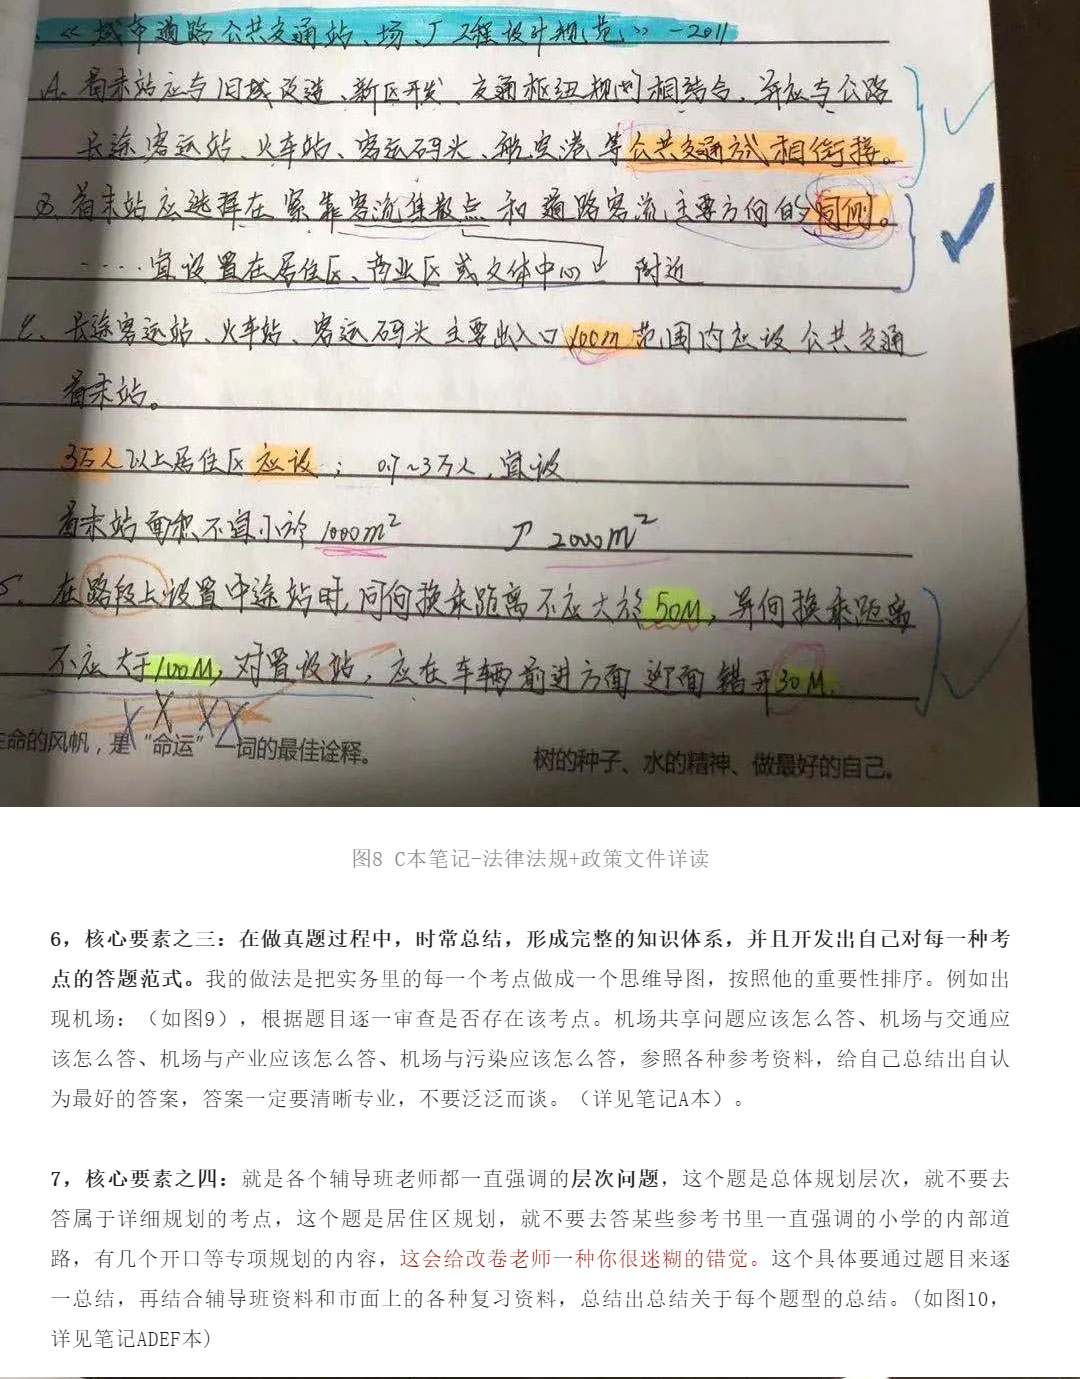 《城市道路公共交通站、场、厂工程设计规范》-2011
A. 首末站应与旧城改造、新区开发、交通枢纽规划相结合、并应与公路
长途客运站、火车站、客运码头、航空港等公共交通方式相衔接。
B. 首末站应选择在紧靠客流集散点和道路客流主要方向的同侧。
.....宜设置在居住区、商业区或文体中心 附近
C、长途客运站、火车站、客运码头主要出入口100m范围内应设公共交通
首末站。
3万人以上居住区应设; 0.7~3万人,宜设
首末站面积不宜小于1000m² 2000m²
在路段上设置中途站时,同向换乘距离不应大于50M,异向换乘距离
不应大于100M,对置设站,应在车辆前进方面迎面错开30M.
生命的风帆,是“命运”一词的最佳诠释。
树的种子、水的精神、做最好的自己。
图8 C本笔记-法律法规+政策文件详读
6,核心要素之三:在做真题过程中,时常总结,形成完整的知识体系,并且开发出自己对每一种考
点的答题范式。我的做法是把实务里的每一个考点做成一个思维导图,按照他的重要性排序。例如出
现机场:(如图9),根据题目逐一审查是否存在该考点。机场共享问题应该怎么答、机场与交通应
该怎么答、机场与产业应该怎么答、机场与污染应该怎么答,参照各种参考资料,给自己总结出自认
为最好的答案,答案一定要清晰专业,不要泛泛而谈。(详见笔记A本)。
7,核心要素之四:就是各个辅导班老师都一直强调的层次问题,这个题是总体规划层次,就不要去
答属于详细规划的考点,这个题是居住区规划,就不要去答某些参考书里一直强调的小学的内部道
路,有几个开口等专项规划的内容,这会给改卷老师一种你很迷糊的错觉。这个具体要通过题目来逐
一总结,再结合辅导班资料和市面上的各种复习资料,总结出总结关于每个题型的总结。(如图10,
详见笔记ADEF本)